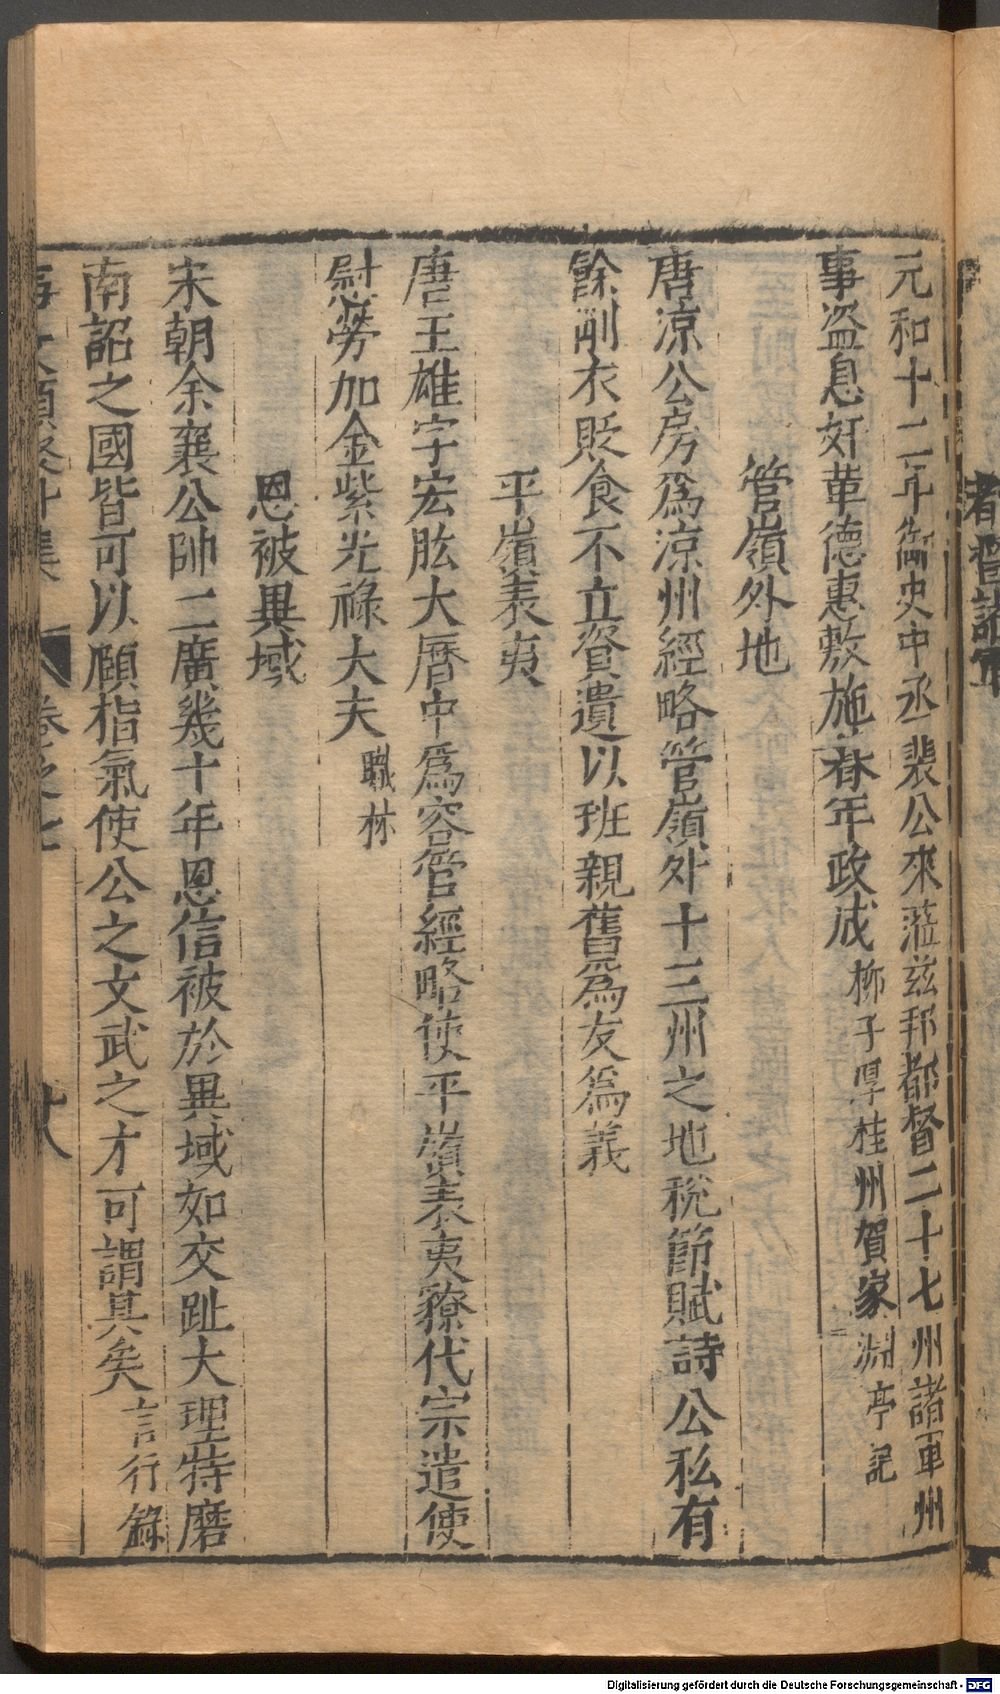 元和十二年御史中丞裴公來蒞兹邦都督二十七州諸軍州
事盗息奸革德惠敷施朞年政成 柳子厚桂州賀家淵亭記
管嶺外地
唐凉公房爲凉州經略管嶺外十三州之地稅節賦詩公私有
餘削衣貶食不立資遺以班親舊爲友爲義
平嶺表夷
唐王雄字宏肱大曆中爲容管經略使平嶺表夷獠代宗遣使
慰勞加金紫光祿大夫 職林
恩被異域
宋朝余襄公帥二廣幾十年恩信被於異域如交趾大理特磨
南詔之國皆可以頤指氣使公之文武之才可謂具矣 言行錄
事文類聚外集 卷之七 十八
都督諸軍
Digitalisierung gefördert durch die Deutsche Forschungsgemeinschaft - DFG